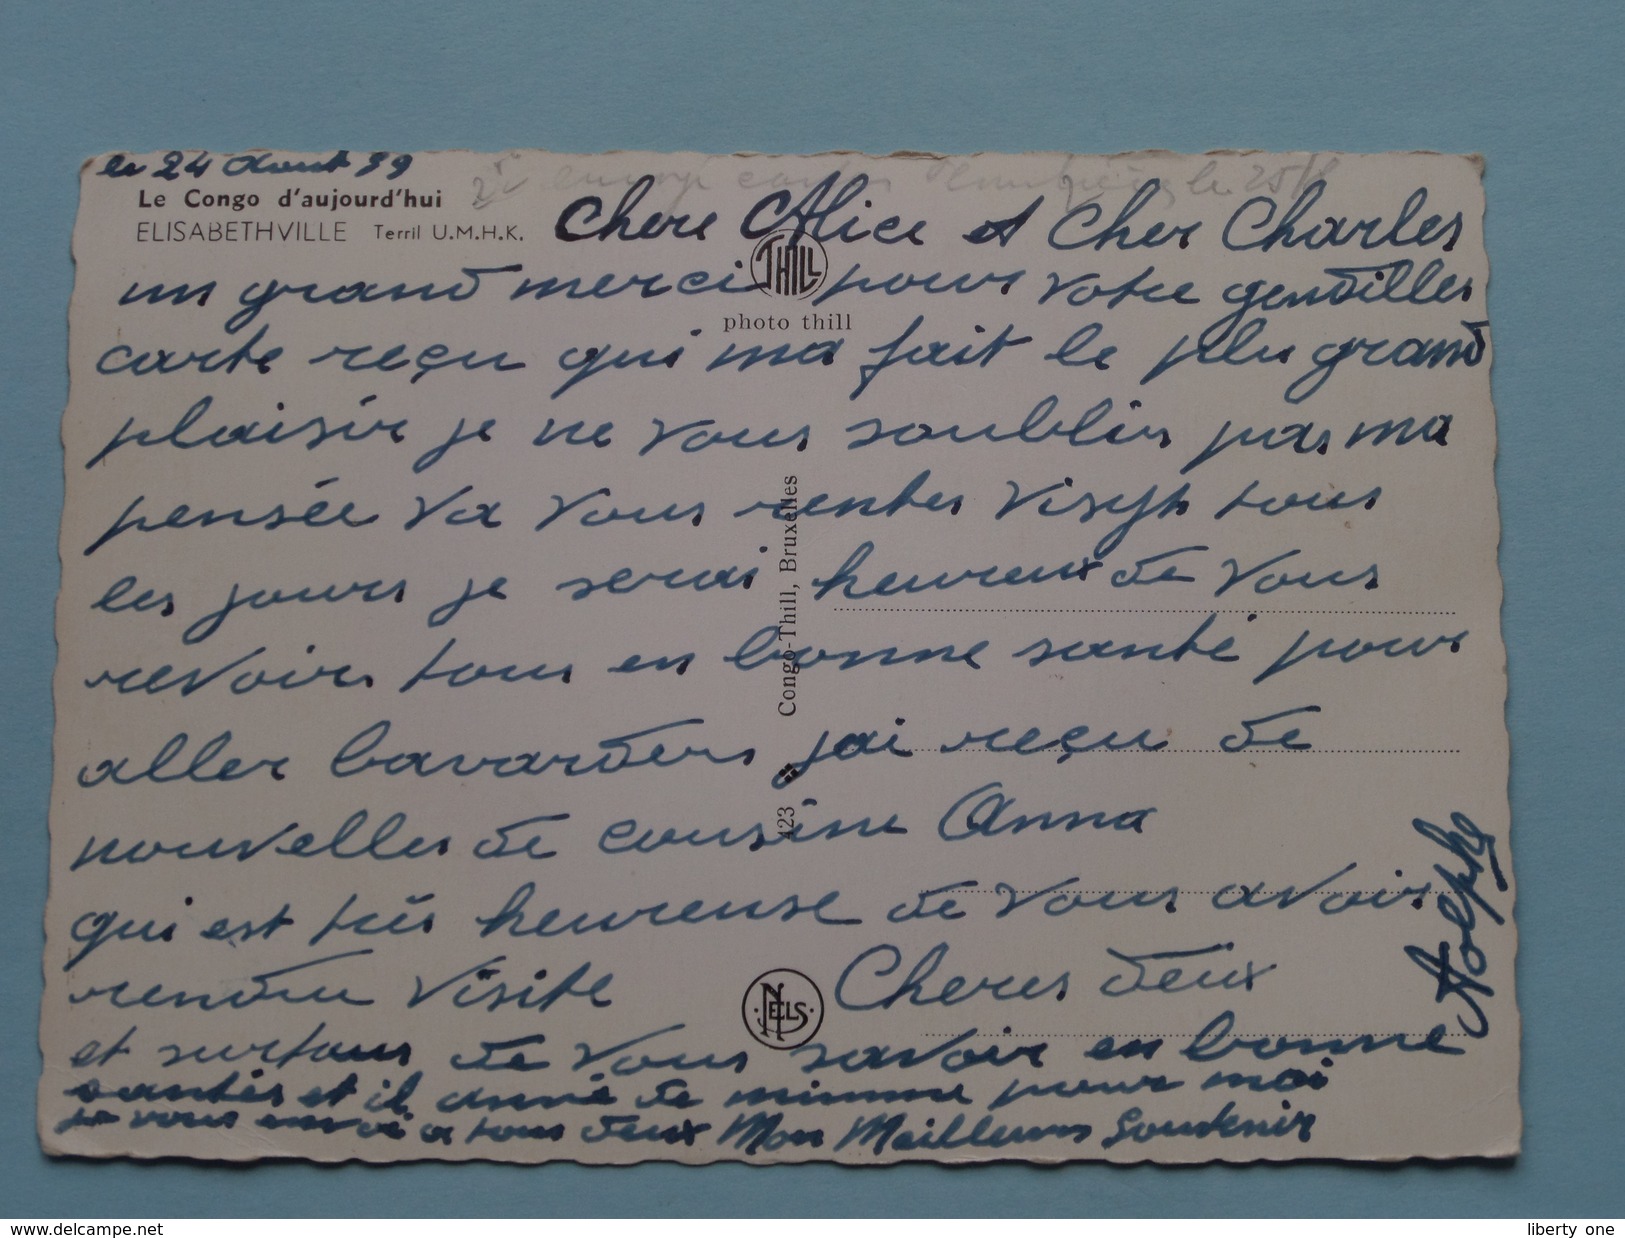 le 24 Aout 59
Le Congo d'aujourd'hui
ELISABETHVILLE Terril U.M.H.K.
Chere Alice et Cher Charles
THILL
photo thill
un grand merci pour votre gentilles
carte reçu qui ma fait le plu grand
plaisir je ne vous soublier pas ma
pensée va vous renter visyt tous
les jours je serai heureux de vous
revoir tous en bonne santé pour
aller bavarders jai reçu de
nouvelles de cousine Anna
qui est très heureuse de vous avoir
rendu visite Cheres deux
et surtous de vous savoir en bonne
santés et il danné de mimme pour moi
je vous envoi a tous deux Mon Meilleurs Souvenir
Adolphe
423 Congo-Thill, Bruxelles
NELS
delcampe.net
liberty one